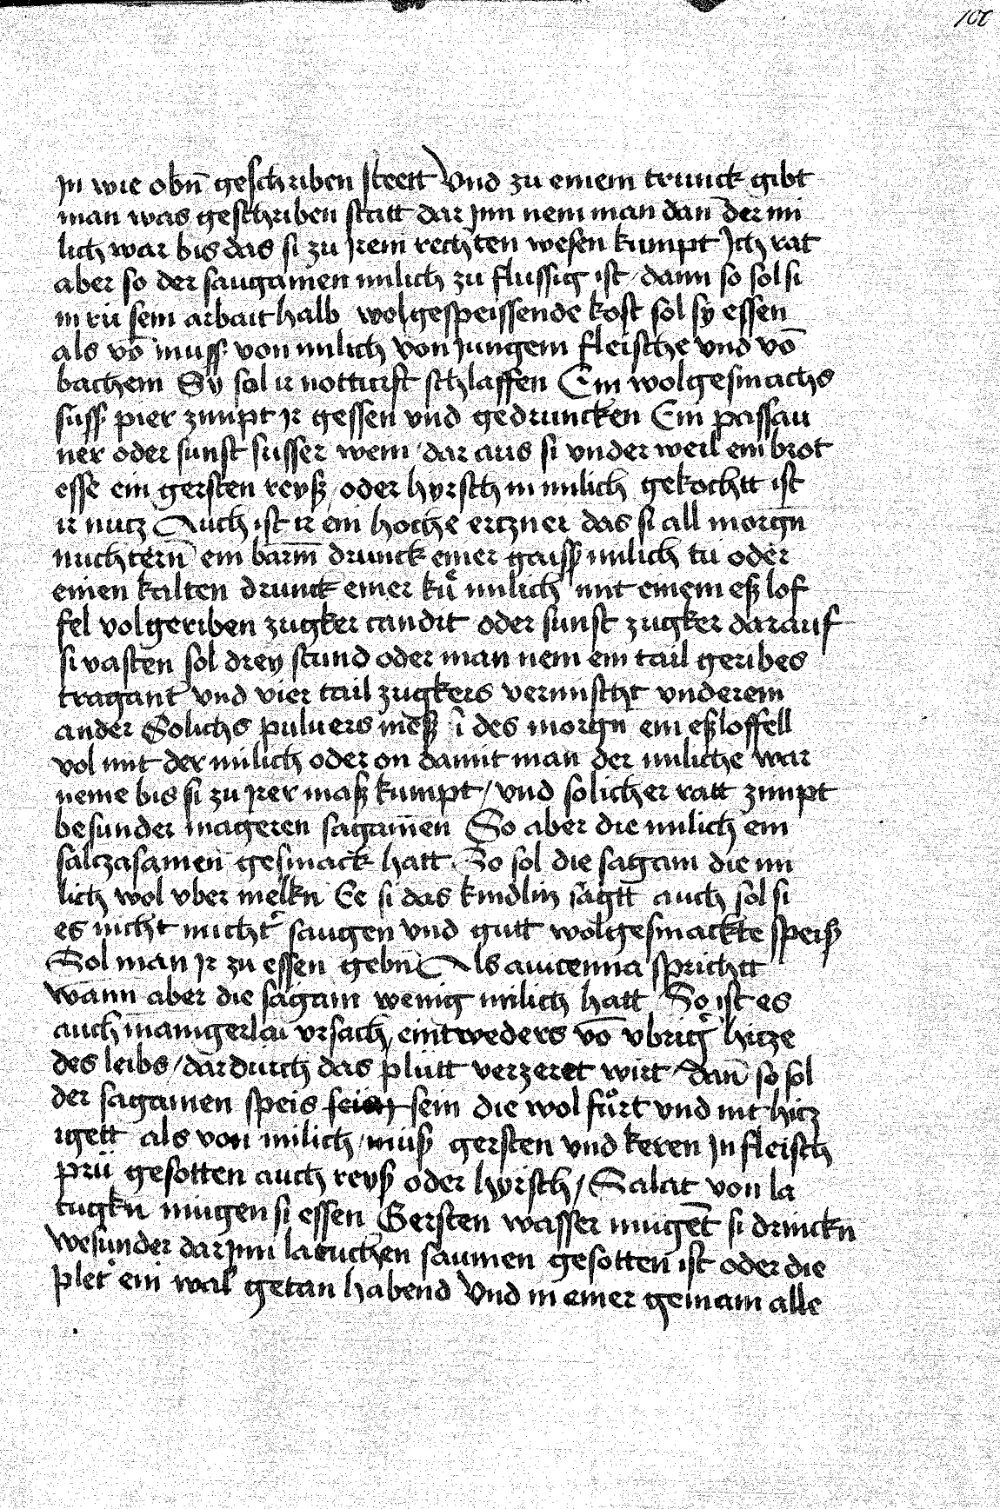 Jn wie obn̄ geschriben steett Vnd zu einem trunck gibt
man was geschriben statt dar Jnn nem man dan̄ der mi
lich war bis das si zu Jrem rechten wesen kumpt Jch rat
aber so der saugamen milich zu flussig ist / dann so sol si
in rů sein arbait halb wolgespeissende kost sol sy essen
als vō muss von milich von Jungem fleische vnd vō
bachem Sy sol ir notturft schlaffen Ein wolgesmachs
suss pier zimpt Jr gessen vnd gedruncken Ein passau
ner oder sunst susser wein / dar aus si vnder weil ein brot
esse ein gersten reyß / oder hyrsch in milich gekochtt ist
ir nutz Auch ist ir ein hoche ertzner das si all morgn
nuchtern̄ ein barm̄ drunck einer gaiss milich tů oder
einen kalten drunck einer ků milich mit einem eß lof
fel volgeriben zugker candit oder sunst zugker darauf
si vasten sol drey stund oder man nem ein tail geribes
tragant vnd vier tail zugkers vermischt vnderein
ander Solichs puluers meß si des morgn ein eßloffell
vol mit der milich oder on damit man der miliche war
neme bis si zu Jrer maß kumpt / vnd solicher ratt zimpt
besunder mageren sagamen So aber die milich ein
saltzasamen gesmack hatt So sol die sagam die mi
lich wol vber melkn Ee si das kindlin sagtt auch sol si
es nicht nucht᷑ saugen vnd gutt wolgesmackte speiß
Sol man Jr zu essen gebn̄ Als auicenna sprichtt
wann aber die sagam wenig milich hatt So ist es
auch manigerlai vrsach / eintweders vō vbrig᷑ hitze
des leibs / dar durch das plutt verzeret wirt / dan̄ so sol
der sagamen speis sein die wol fůrt vnd nit hitz
igett als von milich / mus gersten vnd keren Jn fleisch
prü gesotten auch reyß oder hyrsch / Salat von la
tugkn mugen si essen Gersten wasser muget si drinckn
wesunder dar Jnn latuchen saumen gesotten ist oder die
plet᷑ ein wal getan habend Vnd in einer gemain alle